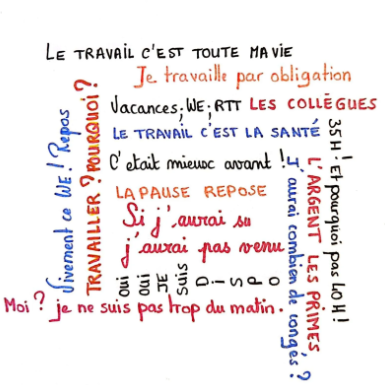 LE TRAVAIL C'EST TOUTE MA VIE
Je travaille par obligation
Vacances; WE; RTT LES COLLÈGUES
LE TRAVAIL C'EST LA SANTÉ
C'etait mieux avant !
LA PAUSE REPOSE
Si j'aurai su
j'aurai pas venu
Vivement ce WE! Repos
TRAVAILLER ? POURQUOI ?
oui
oui
JE
SUIS
DiSPO
J'aurai combien de congés ?
L'ARGENT LES PRIMES
35H ! Et pourquoi pas 40H !
Moi ? je ne suis pas trop du matin.